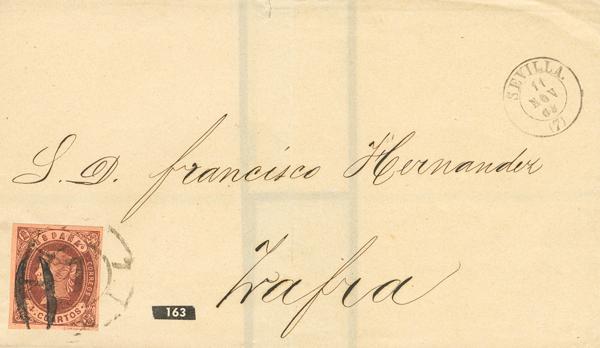 SEVILLA.
11
NOV
(7)
S. D. Francisco Hernandez
Zafra
ESPAÑA
CORREOS
4 CUARTOS
163